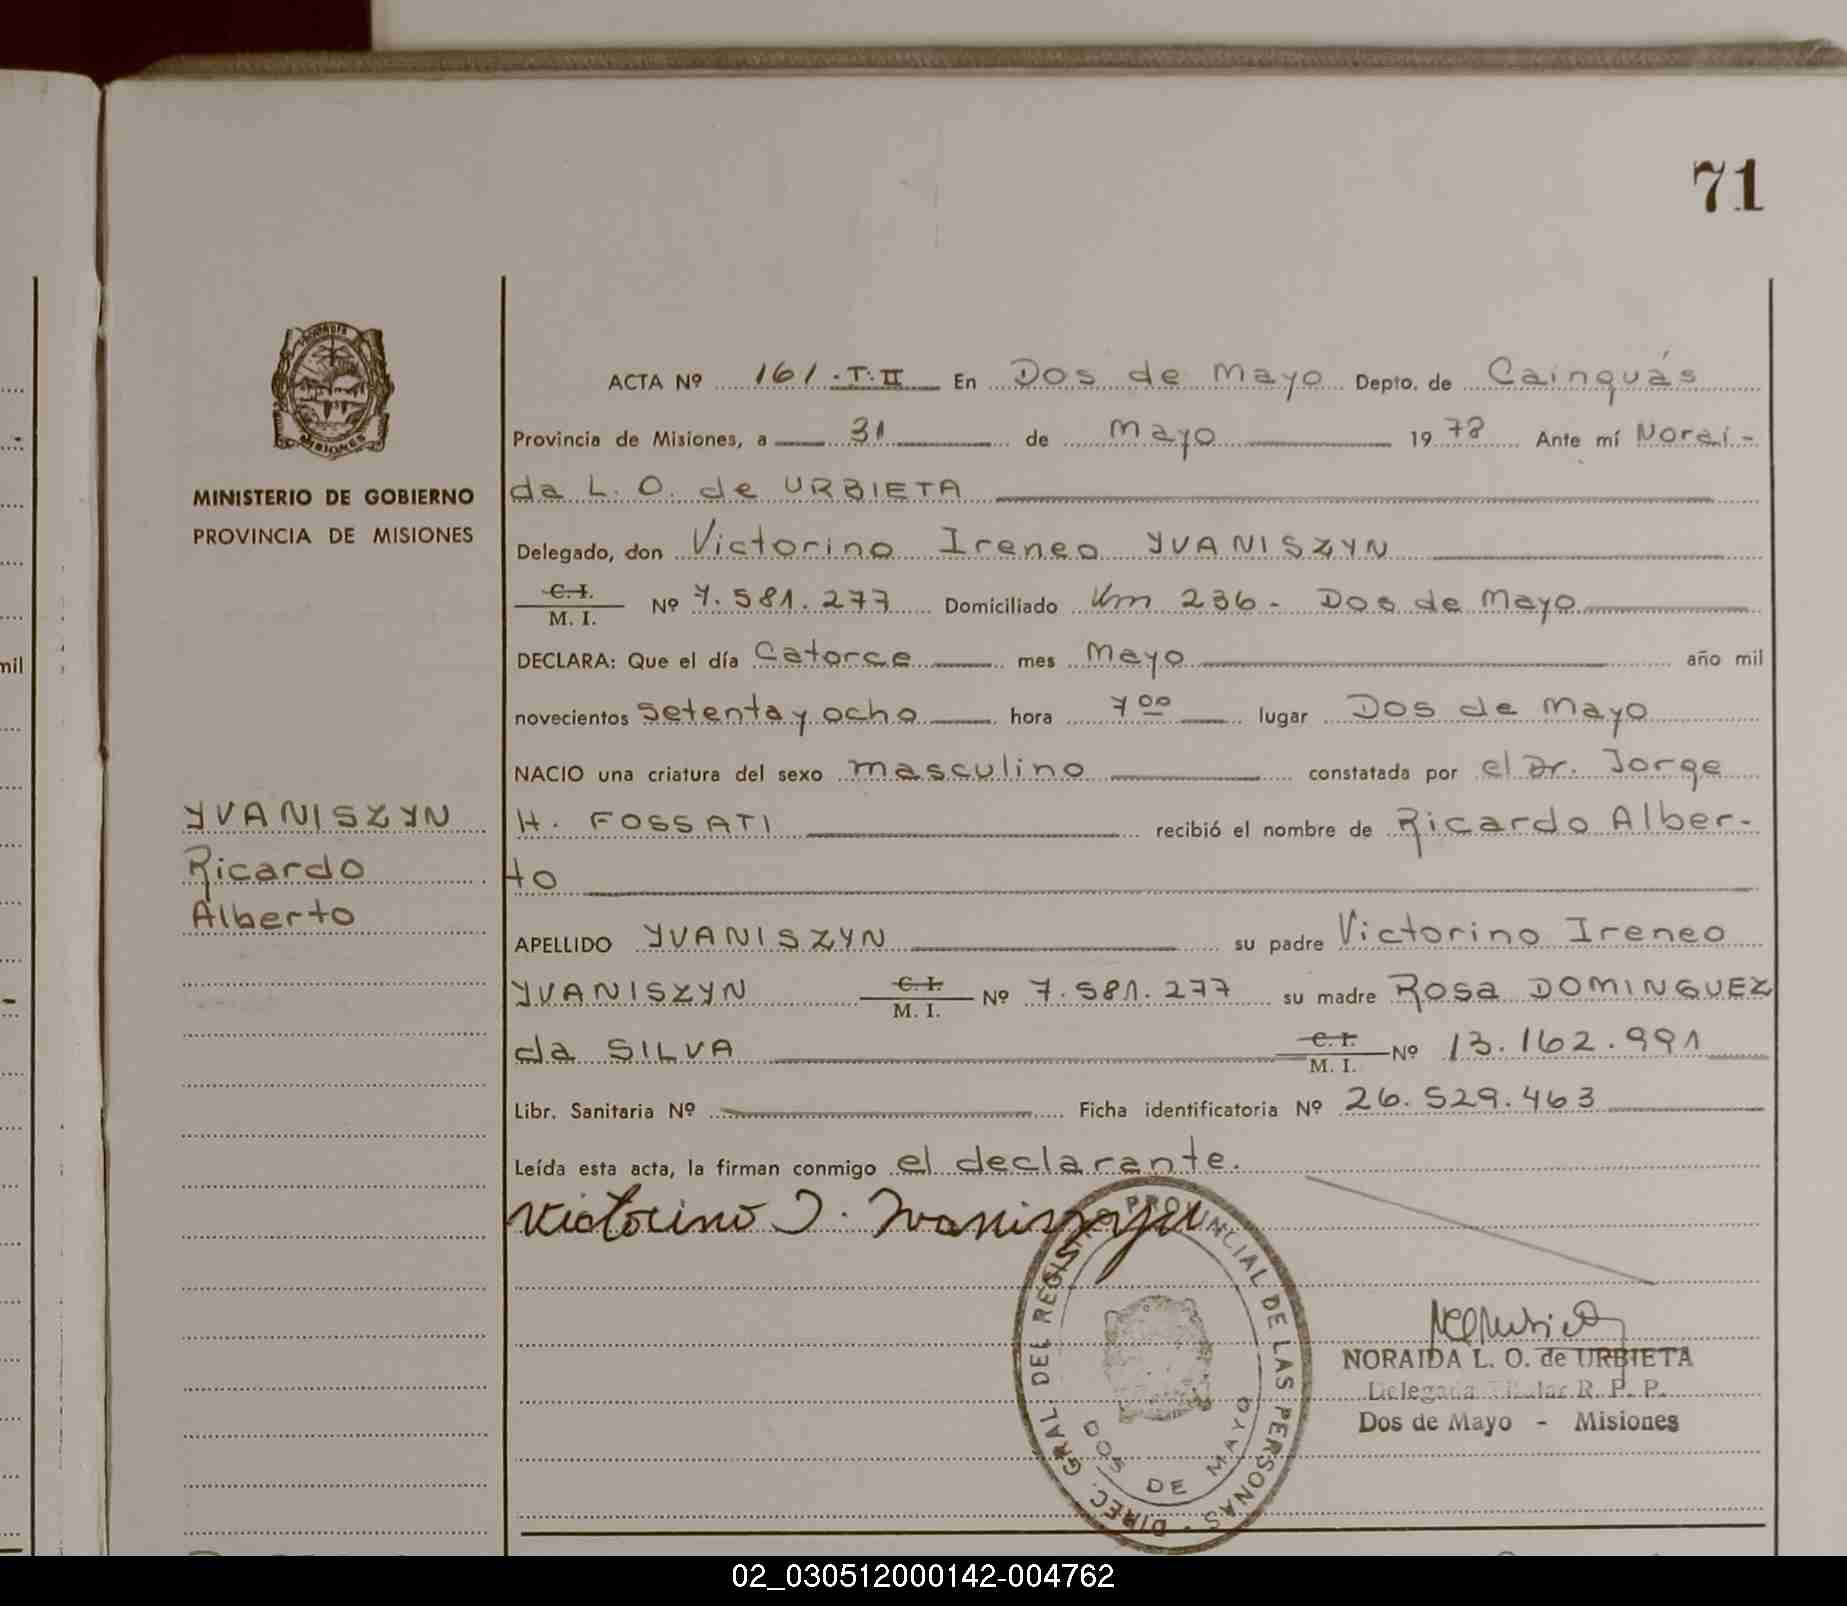 71
MINISTERIO DE GOBIERNO
PROVINCIA DE MISIONES
YVANISZYN
Ricardo
Alberto
mil
ACTA Nº 161.T.II En Dos de Mayo Depto. de Cainguás
Provincia de Misiones, a 31 de Mayo 1978 Ante mí Norai-
da L. O. de URBIETA
Delegado, don Victorino Ireneo YVANISZYN
C. I.
M. I. Nº 7.581.277 Domiciliado Km 236- Dos de Mayo
DECLARA: Que el día Catorce mes Mayo año mil
novecientos setenta y ocho hora 7 00 lugar Dos de Mayo
NACIO una criatura del sexo masculino constatada por el Dr. Jorge
H. FOSSATI recibió el nombre de Ricardo Alber-
to
APELLIDO YVANISZYN su padre Victorino Ireneo
YVANISZYN C. I. M. I. Nº 7.581.277 su madre Rosa DOMINGUEZ
da SILVA C. I. M. I. Nº 13.162.991
Libr. Sanitaria Nº Ficha identificatoria Nº 26.529.463
Leída esta acta, la firman conmigo el declarante.
Victorino I. Ivaniszyn
DIREC. GRAL. DEL REGISTRO PROVINCIAL DE LAS PERSONAS
DOS DE MAYO
NORAIDA L. O. de URBIETA
Delegada Titular R. P. P.
Dos de Mayo - Misiones
02_030512000142-004762